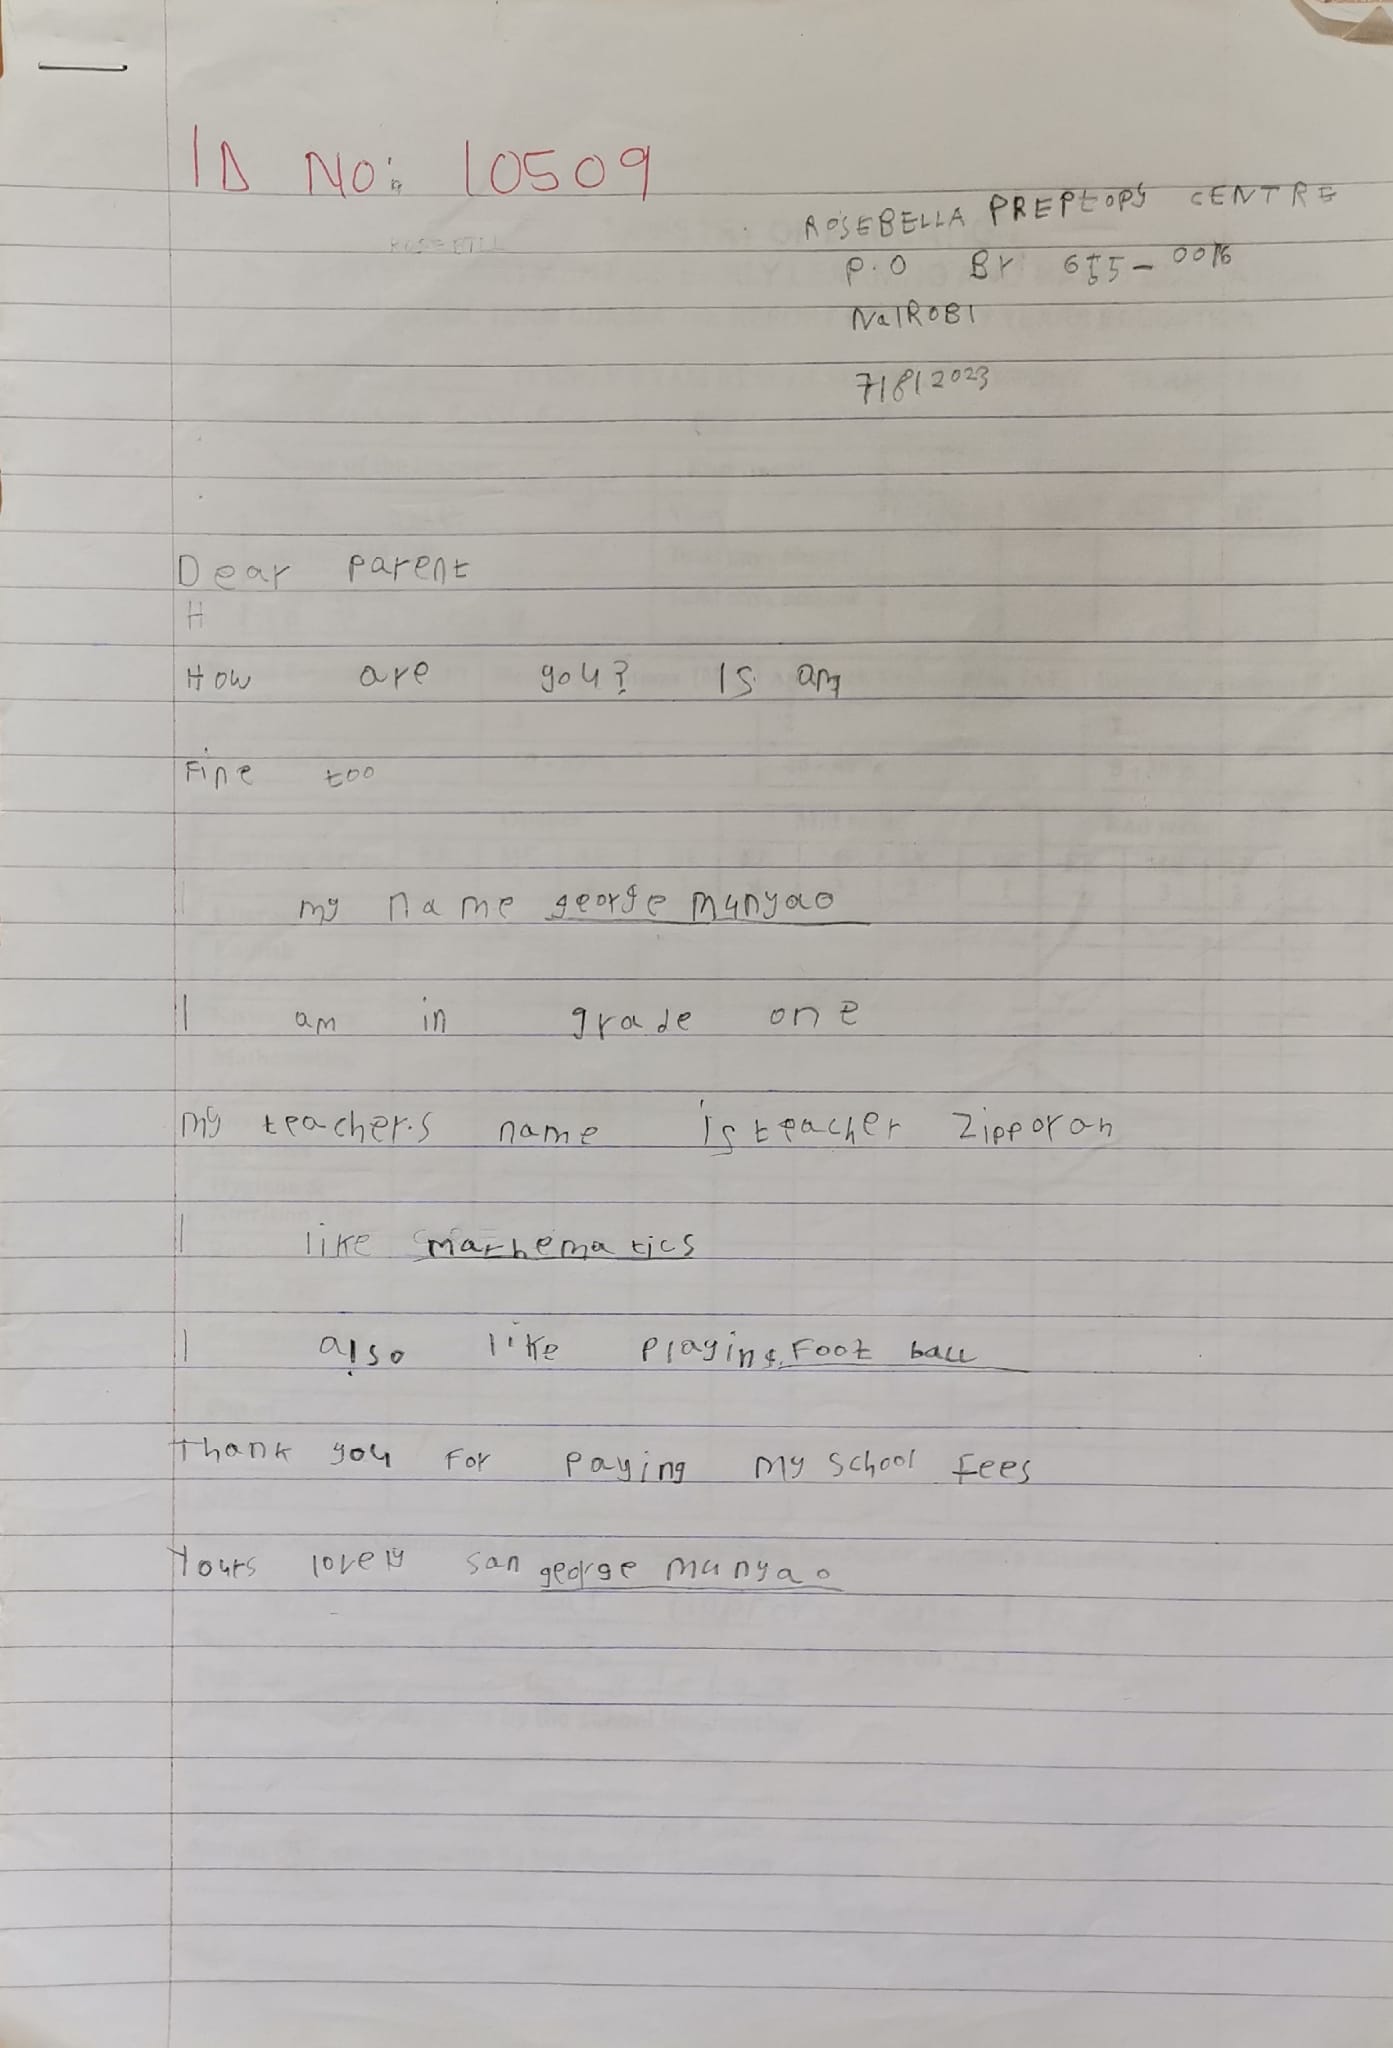 ID NO: 10509
ROSEBELLA PREPtOPY CENTRE
P.O BY
NaIROBI
7/8/2023
Dear parent
H
How are you? IS am
Fine too
my name george munyao
I am in grade one
my teacher.s name is teacher Zipporah
I like mathematics
I also like playing Foot ball
Thank you For paying my school fees
Yours lovely san george munyao